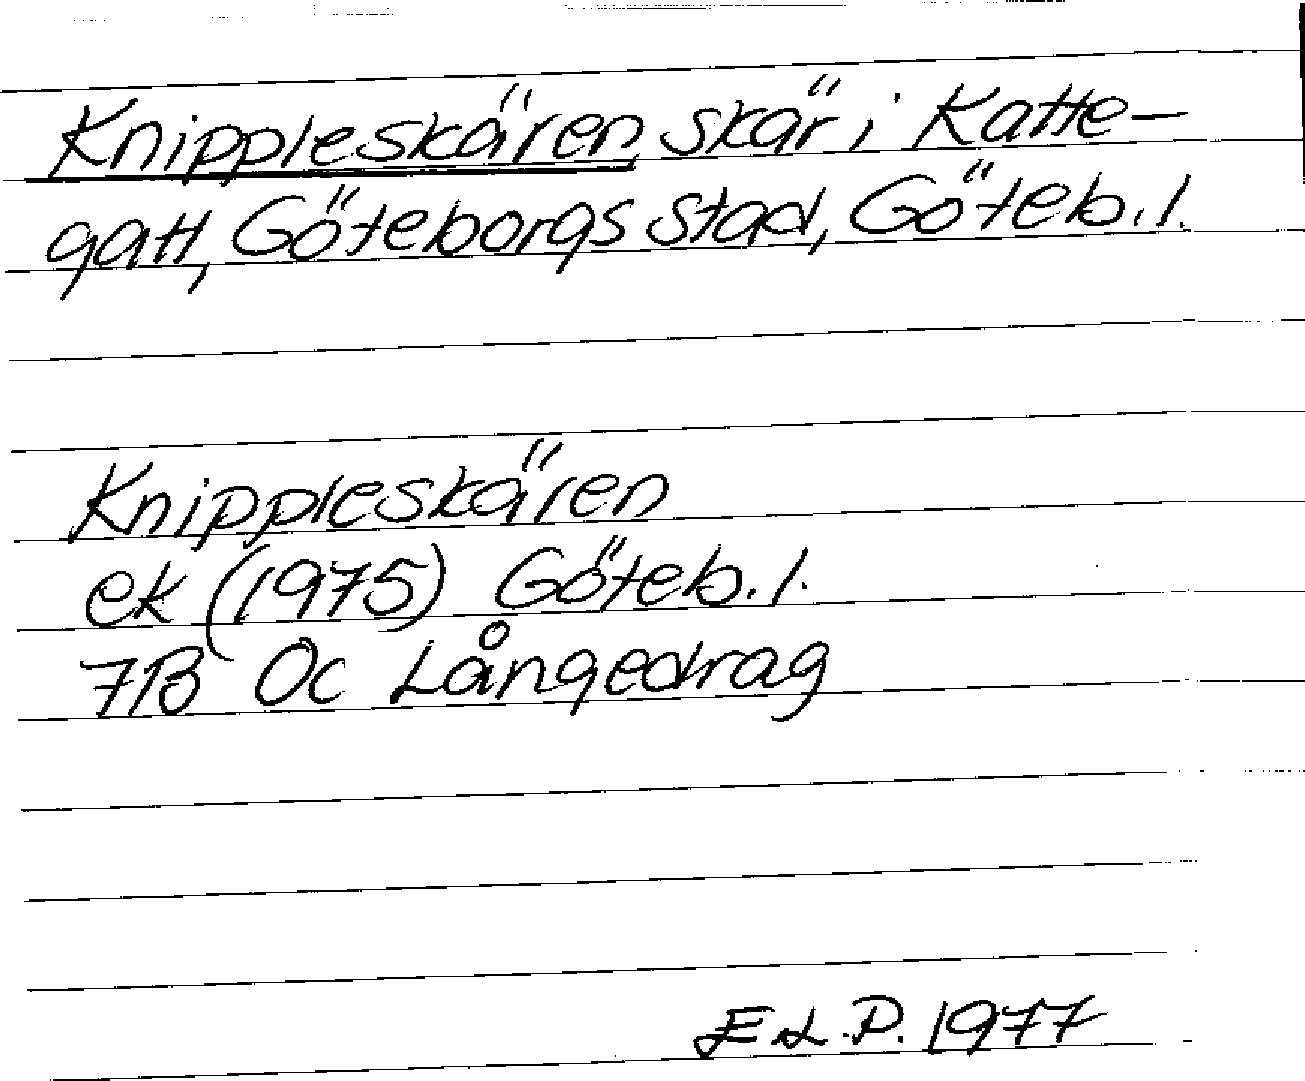 Knippleskären, skär i Katte-
gatt, Göteborgs stad, Göteb. l.
Knippleskären
ek (1975) Göteb. l.
7B 0c Långedrag
E.L.P. 1977